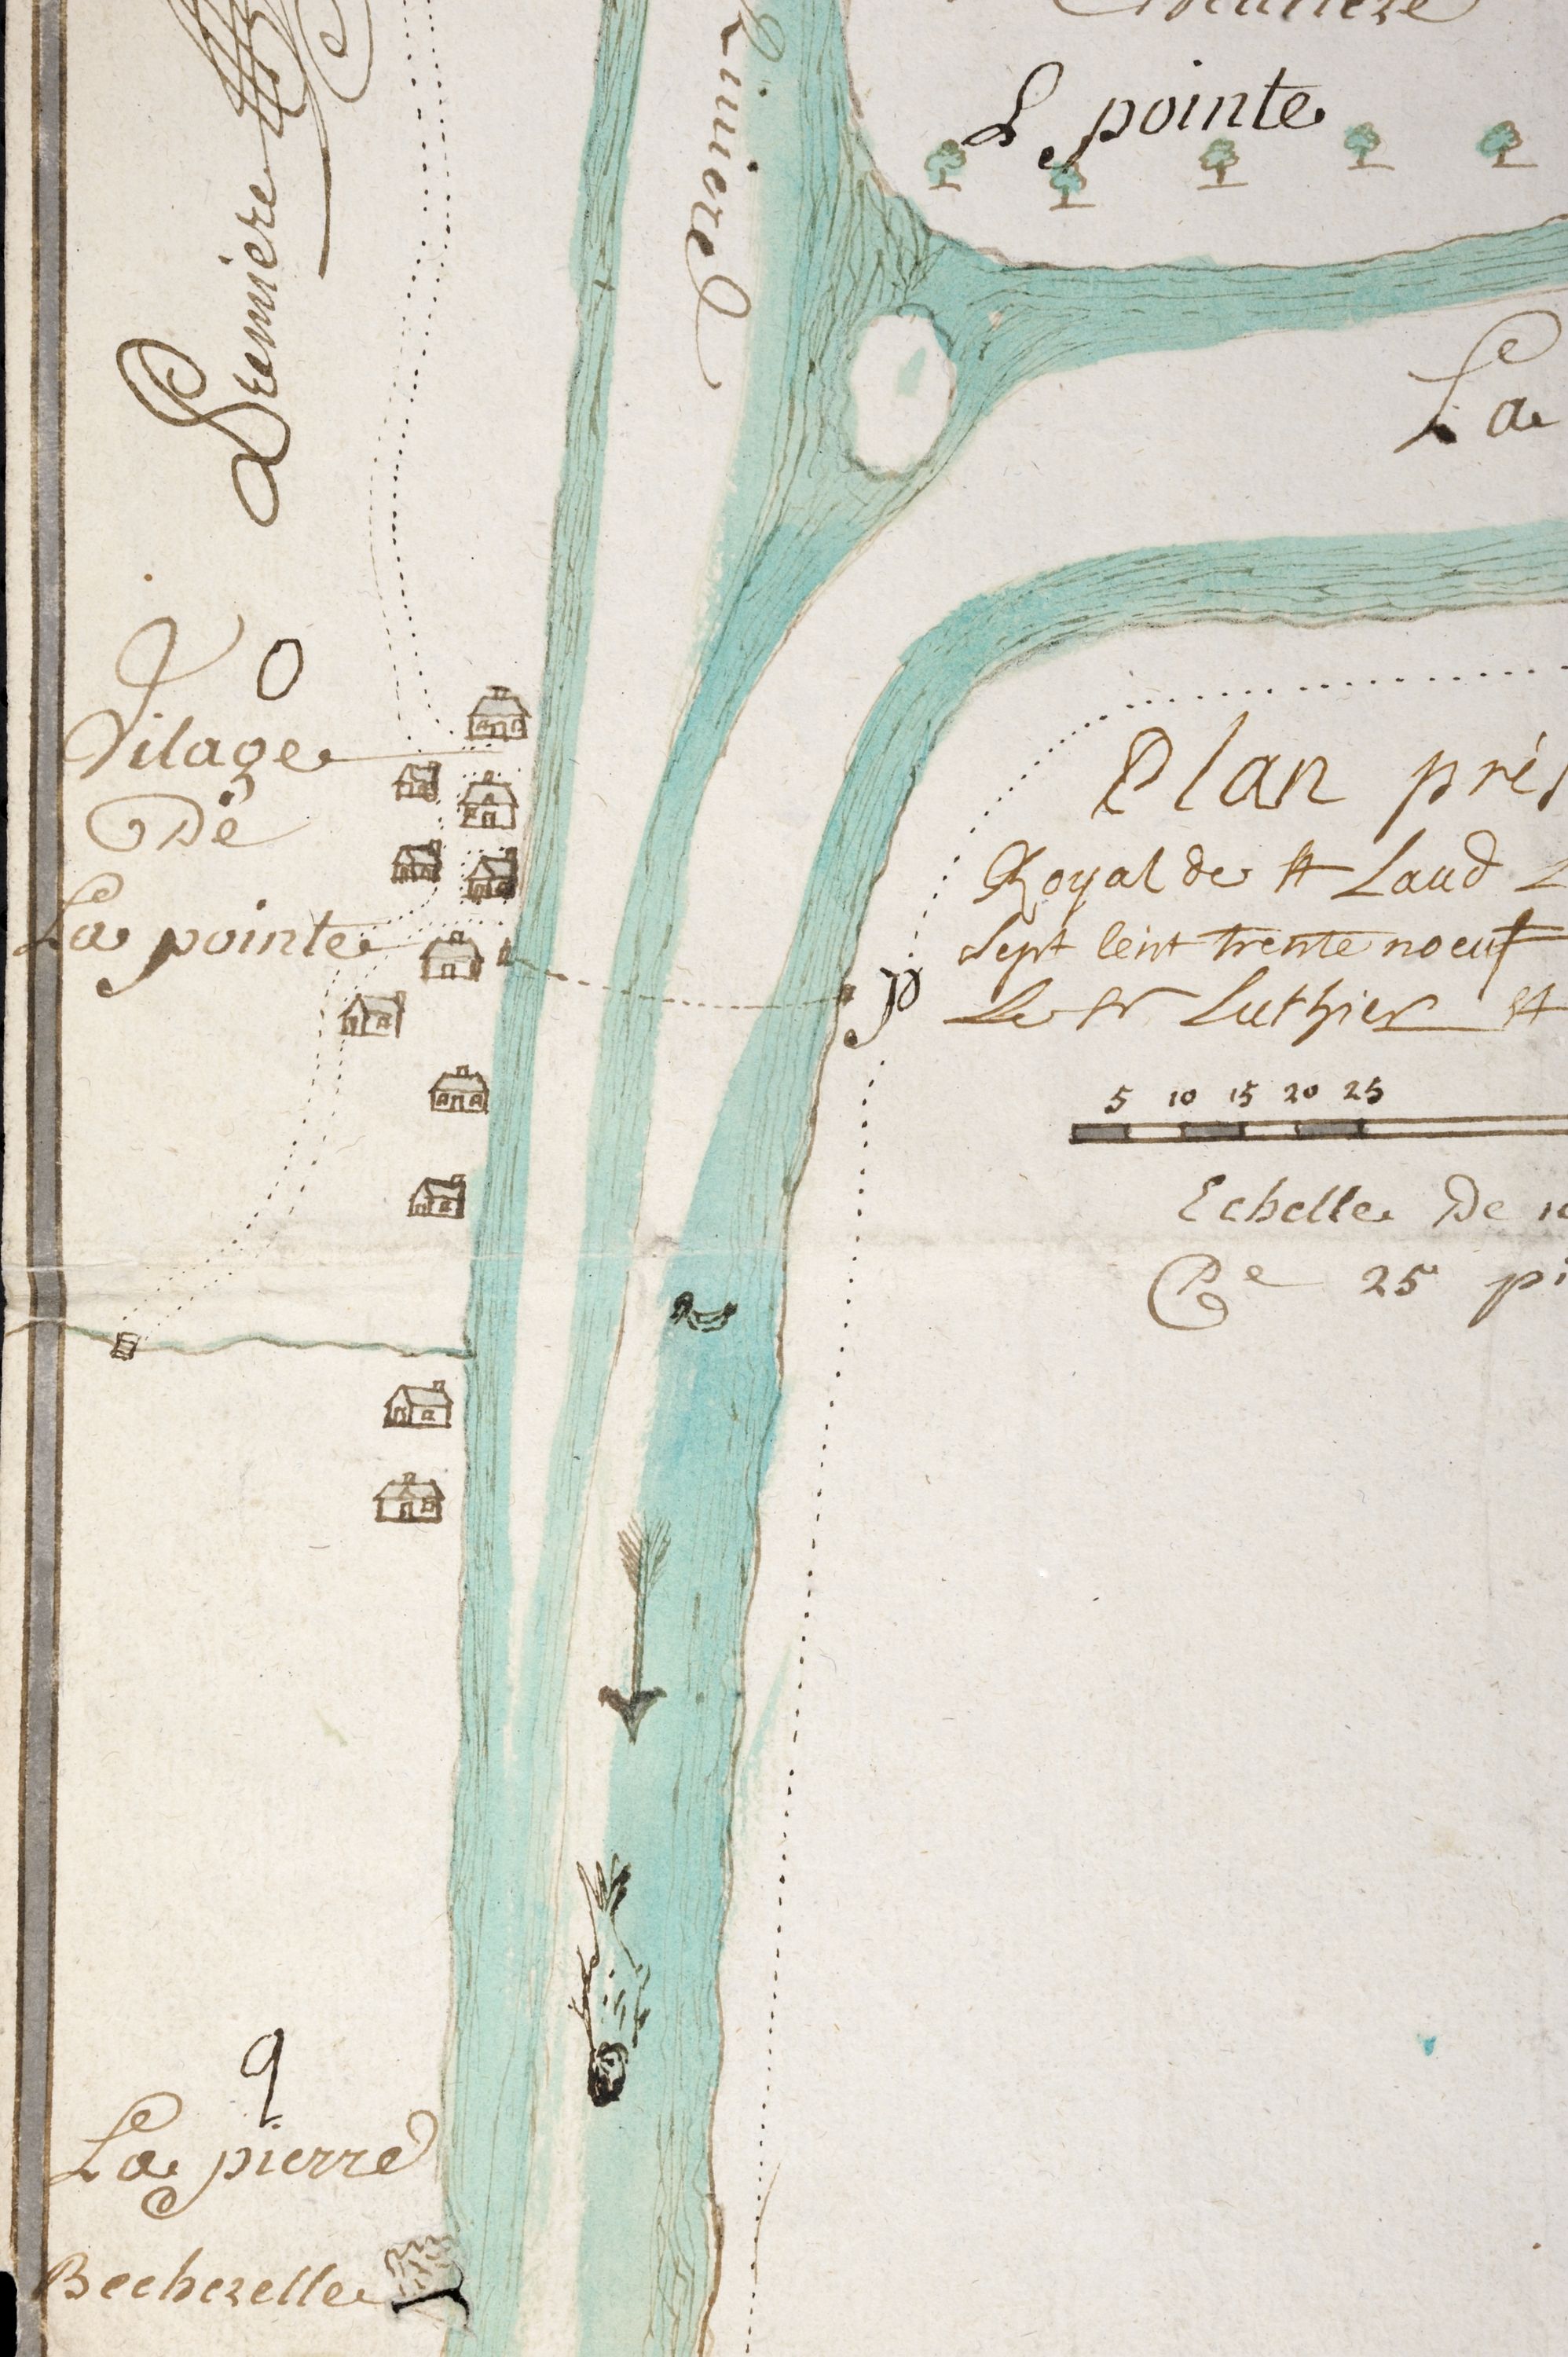 Riuiere
L pointe
La
Premiere
O
Vilage
De
La pointe
Plan prés
Royal de St Laud L
Sept Cent trente noeuf
Le Sr Luthier St
p
5 10 15 20 25
Echelle De
Ce 25 pi
q
La pierre
Becherelle